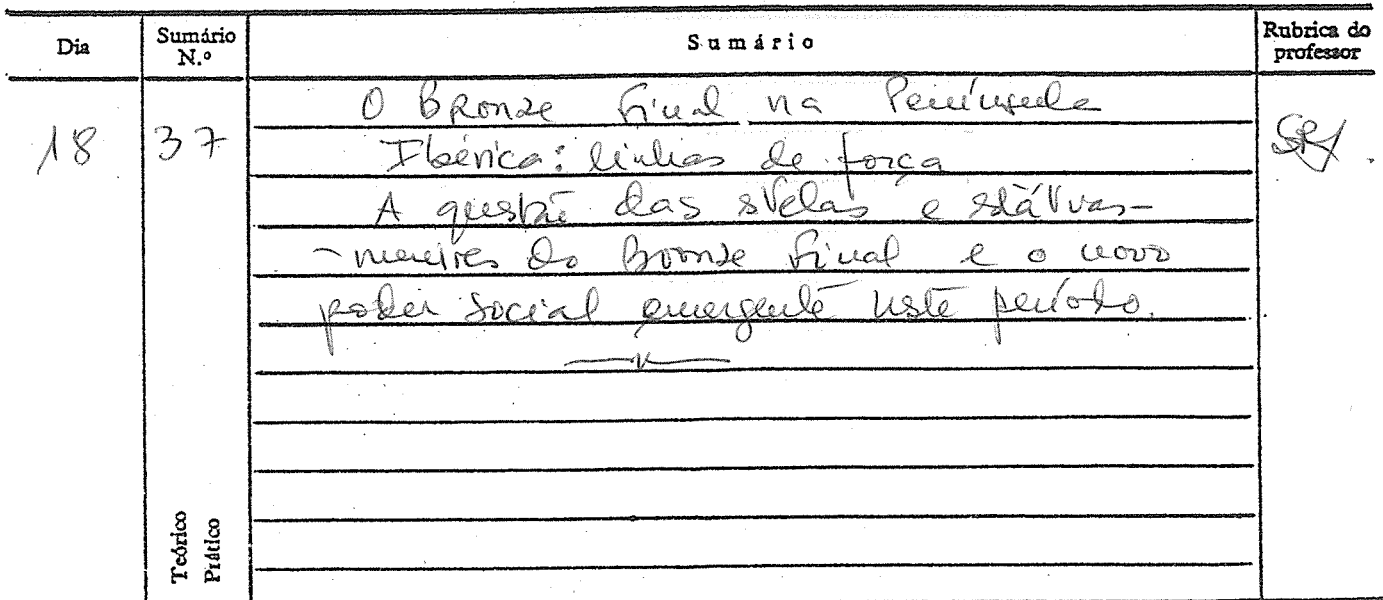 Dia Sumário N.º Sumário Rubrica do professor
O Bronze Final na Península
18 37 Ibérica: linhas de força
A questão das stelas e státuas-
-menires do Bronze Final e o novo
poder social emergente neste período.
Teórico
Prático